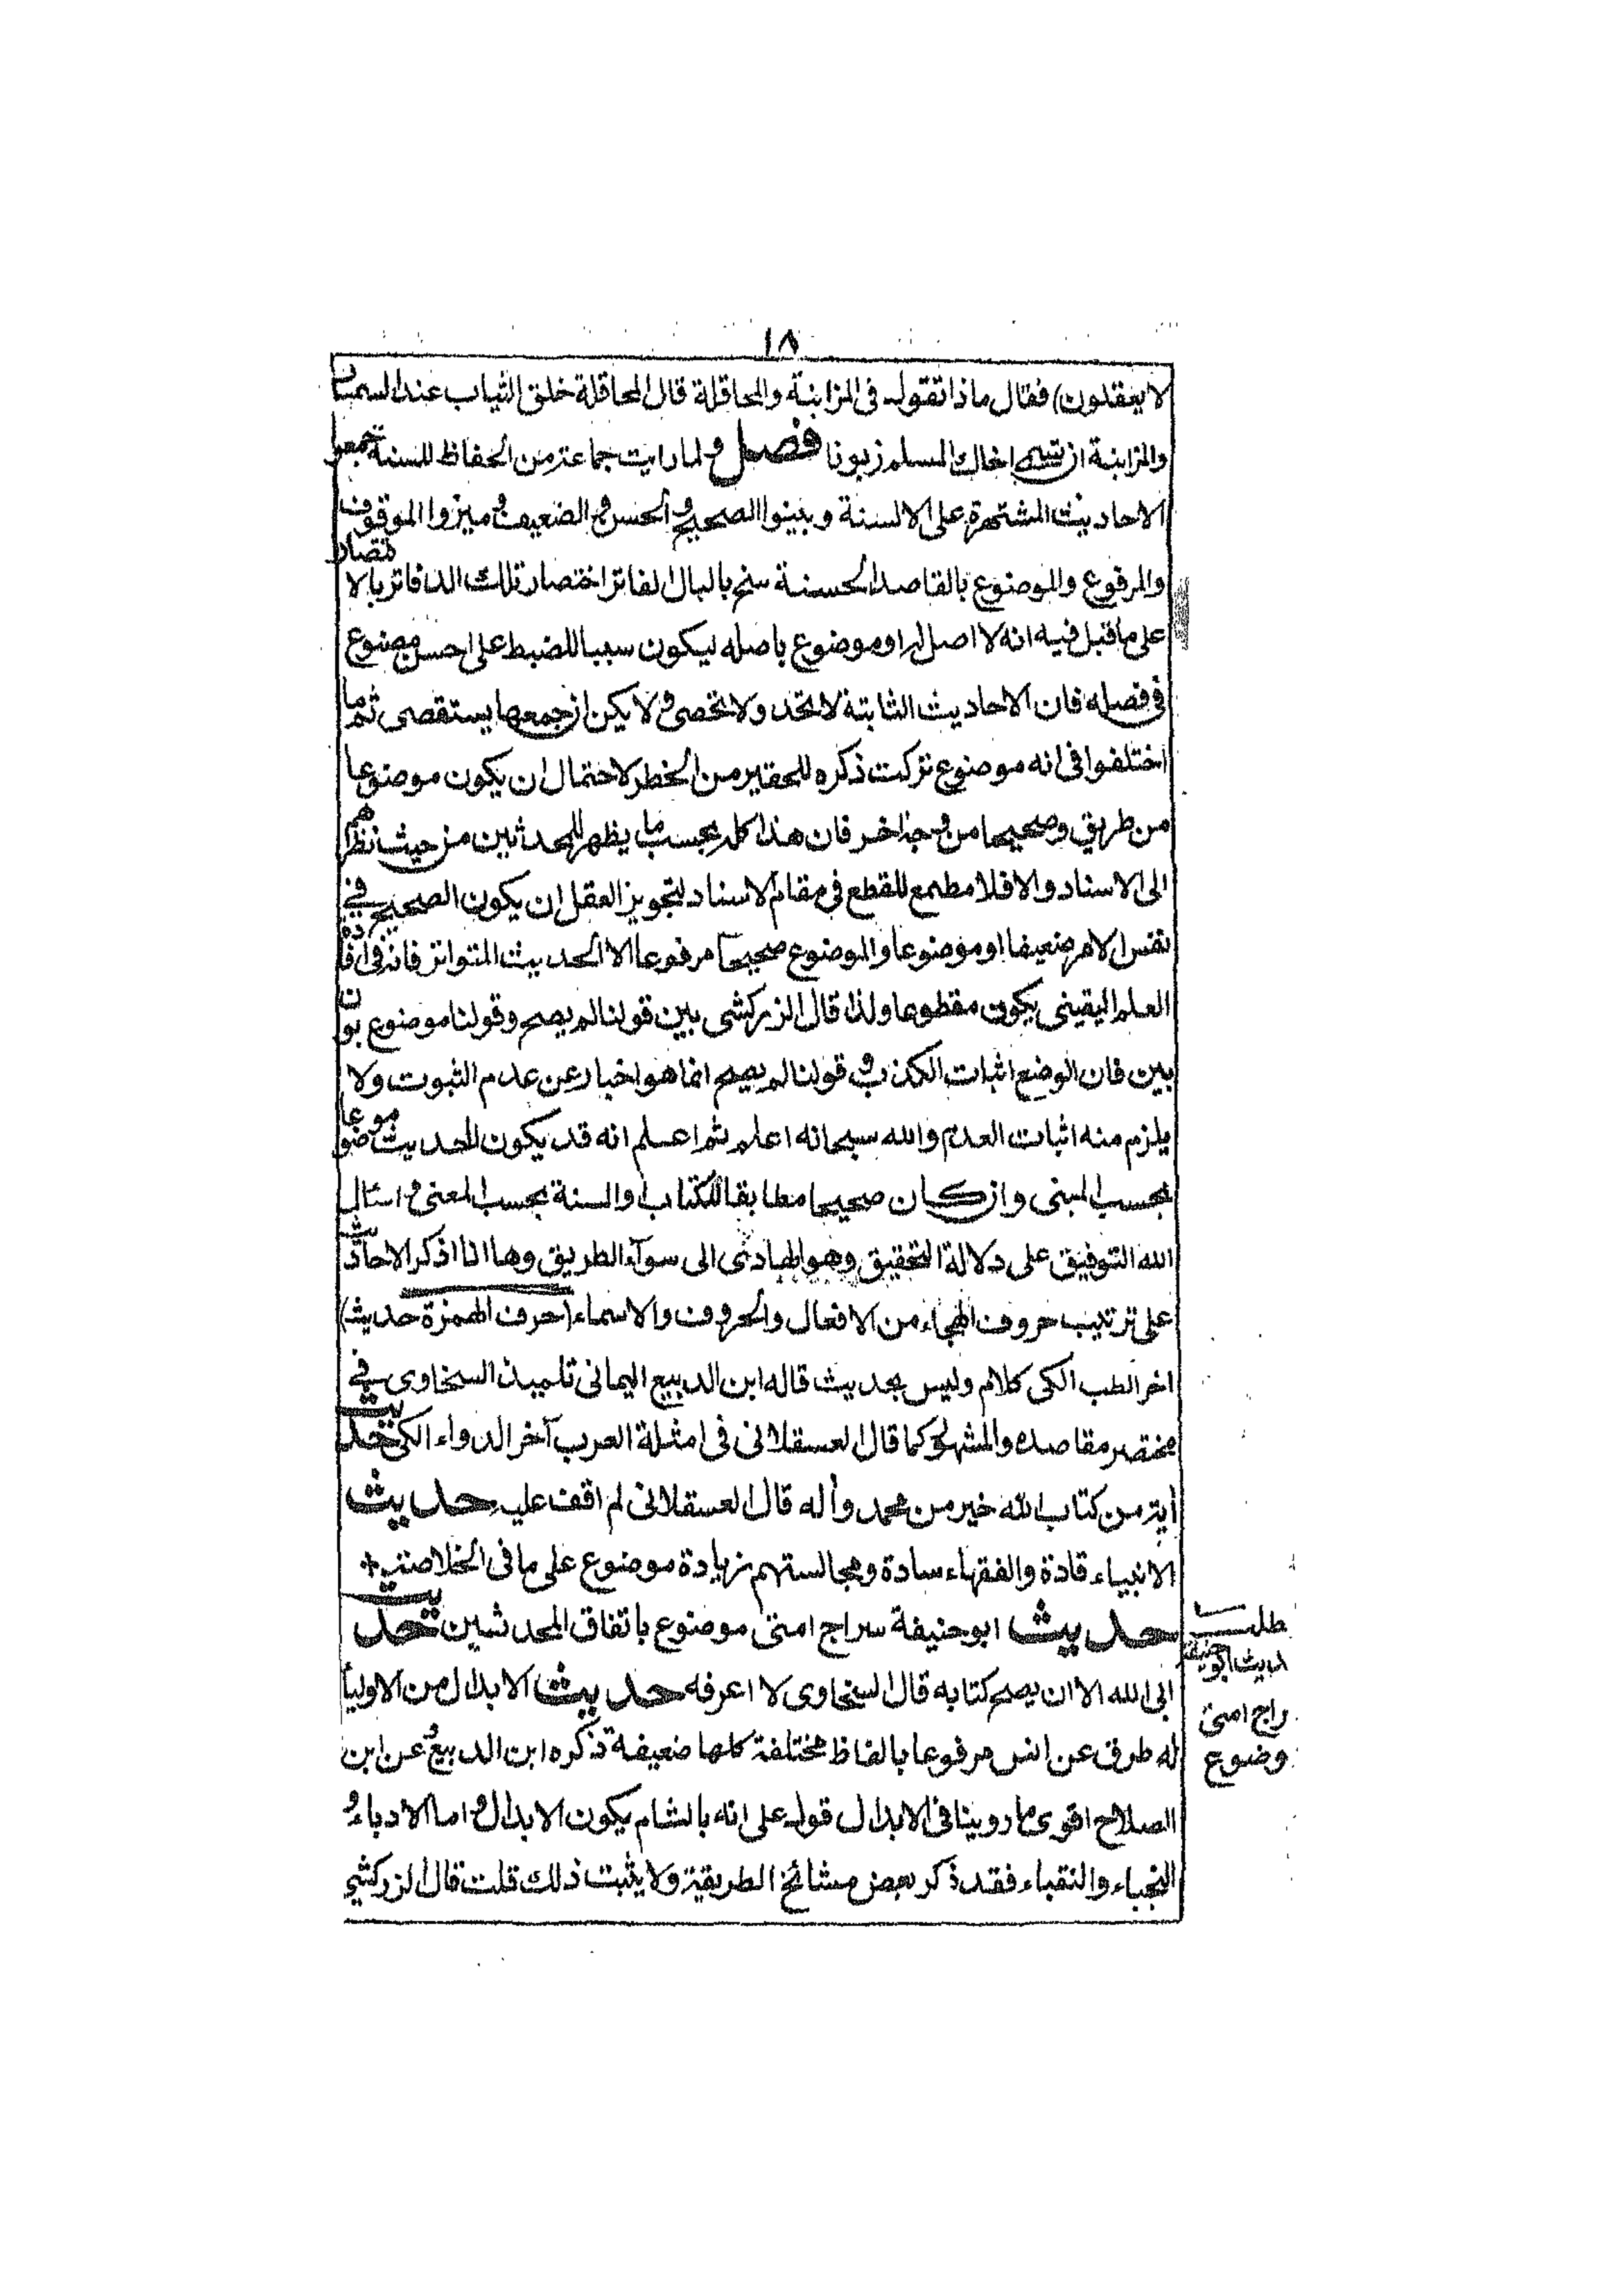 ١٨
لا يعقلون) فقال ماذا تقوله في المزابنة والمحاقلة قال المحاقلة خلق الثياب عند السمسار
والمزابنة ان تسمي اخاك المسلم زبونا فصل ولما رايت جماعة من الحفاظ للسنة جمعوا
الاحاديث المشتهرة على الالسنة وبينوا الصحيح والحسن والضعيف وميزوا الموقوف
والمرفوع والموضوع بالقاصد الحسنة سنح بالبال الفاتر اختصار تلك الدفاتر بالاقتصار
على ما قيل فيه انه لا اصل له او موضوع باصله ليكون سببا للضبط على احسن مصنوع
في فصله فان الاحاديث الثابتة لا تحد ولا تحصى ولا يمكن ان جمعها يستقصى ثم ما
اختلفوا في انه موضوع تركت ذكره للحقير من الخطر لاحتمال ان يكون موضوعا
من طريق وصحيحا من وجه اخر فان هذا كله بحسب ما يظهر للمحدثين من حيث نظرهم
الى الاسناد والا فلا مطمع للقطع في مقام الاسناد لتجويز العقل ان يكون الصحيح في
نفس الامر ضعيفا او موضوعا والموضوع صحيحا مرفوعا الا الحديث المتواتر فانه في افادة
العلم اليقيني يكون مقطوعا ولذا قال الزركشي بين قولنا لم يصح وقولنا موضوع بون
بين فان الوضع اثبات الكذب وفي قولنا لم يصح انما هو اخبار عن عدم الثبوت ولا
يلزم منه اثبات العدم والله سبحانه اعلم ثم اعلم انه قد يكون الحديث موضوعا
بحسب المبنى وان كان صحيحا مطابقا للكتاب والسنة بحسب المعنى واسئال
الله التوفيق على دلالة التحقيق وهو الهادى الى سوآء الطريق وها انا اذكر الاحاديث
على ترتيب حروف الهجاء من الافعال والحروف والاسماء (حرف الهمزة حديث)
اخر الطب الكي كلام وليس بحديث قاله ابن الديبع اليماني تلميذ السخاوى في
مختصر مقاصده والمشهور كما قال العسقلانى فى امثلة العرب آخر الدواء الكى حديث
أية من كتاب الله خير من محمد وأله قال العسقلانى لم اقف عليه حديث
الانبياء قادة والفقهاء سادة ومجالستهم زيادة موضوع على ما فى الخلاصة
حديث ابو حنيفة سراج امتى موضوع باتفاق المحدثين حديث
ابى الله الا ان يصح كتابه قال السخاوى لا اعرفه حديث الابدال من الاوليا
له طرق عن انس مرفوعا بالفاظ مختلفة كلها ضعيفة ذكره ابن الديبع وعن ابن
الصلاح اقوى ما روينا فى الابدال قول على انه بالشام يكون الابدال واما الادباء و
النجباء والنقباء فقد ذكر بعض مشائخ الطريقة ولا يثبت ذلك قلت قال الزركشي
طلب
حديث ابو حنيفة
راج امتى
وضوع